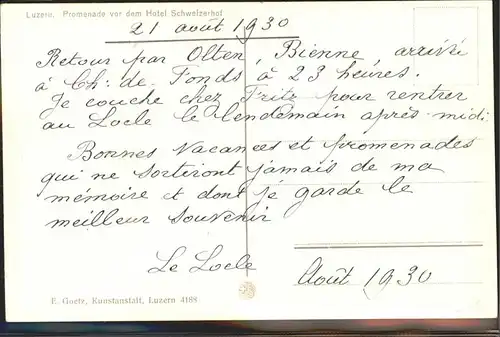 Luzern. Promenade vor dem Hotel Schweizerhof
21 août 1930
Retour par Olten, Bienne, arrivée
à Ch: de Fonds à 23 heures.
Je couche chez Fritz pour rentrer
au Locle le lendemain après-midi
Bonnes Vacances et promenades
qui ne sortiront jamais de ma
mémoire et dont je garde le
meilleur souvenir
Le Locle
Août 1930
E. Goetz, Kunstanstalt, Luzern 4188